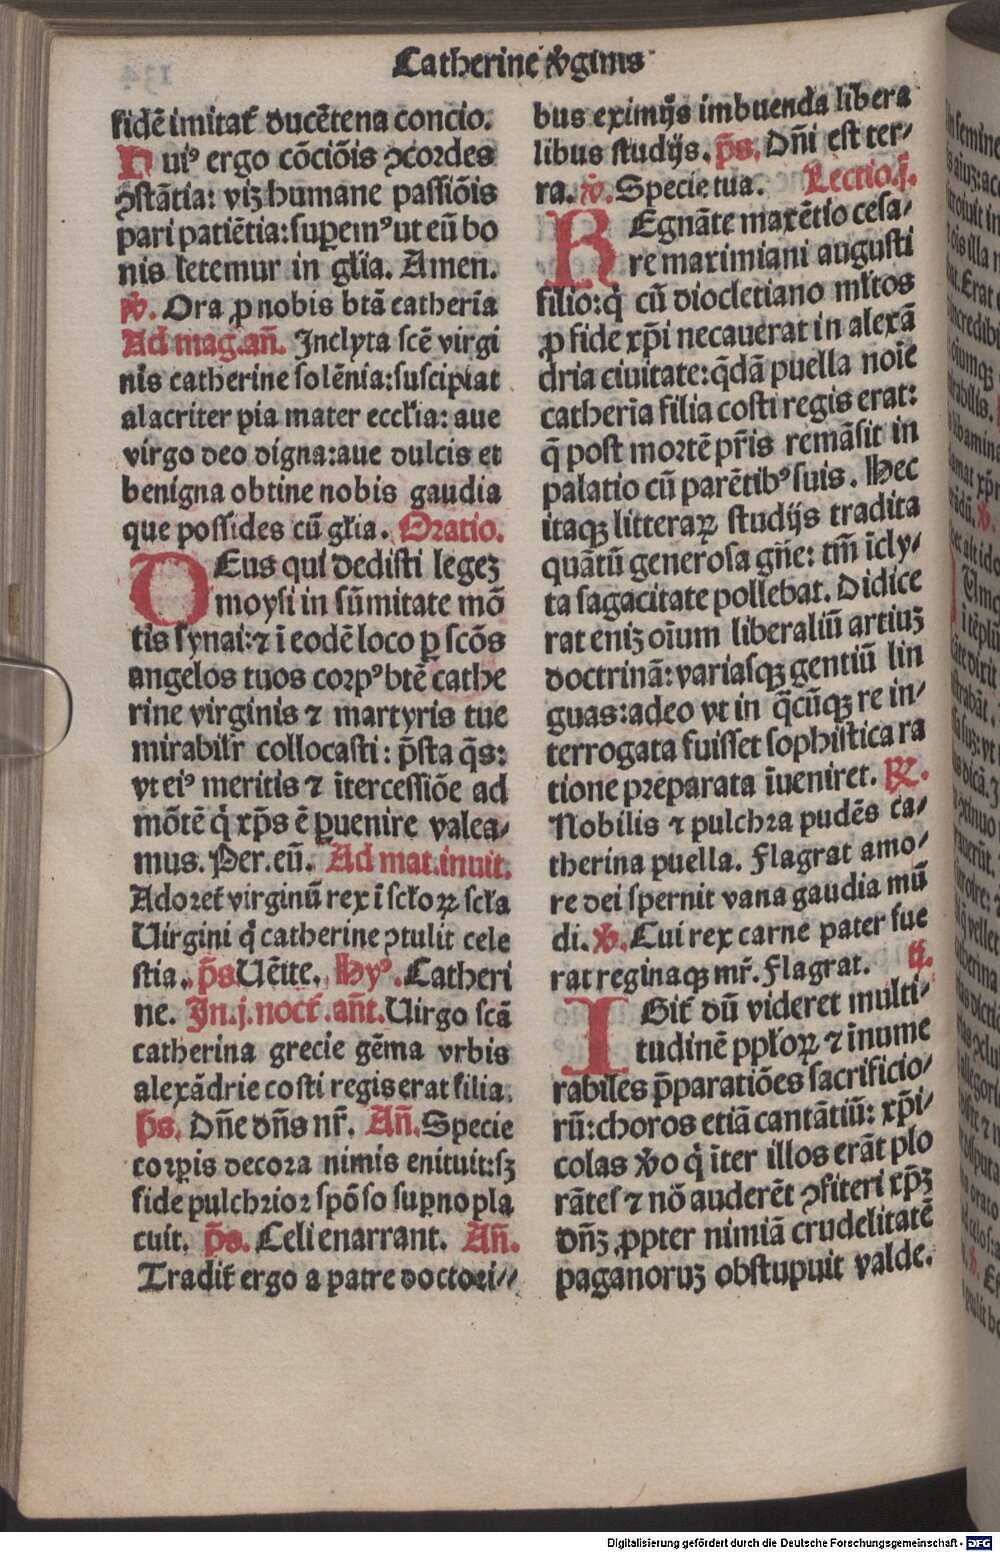 Catherine v̄gınıs
fidē imitat᷑ ducētena concio.
Huiꝰ ergo cōciōis ↄcordes
ↄstātia: viꝫ humane passiōis
pari patiētia: suꝑemꝰ ut eū bo
nis letemur in gl̄ia. Amen.
v̄. Ora ꝓ nobis btā catherīa
Ad mag. an̄. Inclyta scē virgi
nis catherine solēnia: suscipiat
alacriter pia mater eccl̄ia: aue
virgo deo digna: aue dulcis et
benigna obtine nobis gaudia
que possides cū gl̄ia. Oratio.
DEus qui dedisti legeꝫ
moysi in sūmitate mō
tis synai: ⁊ ī eodē loco ꝑ scōs
angelos tuos corpꝰ btē cathe
rine virginis ⁊ martyris tue
mirabilr̄ collocasti: p̄sta q̄s:
vt eiꝰ meritis ⁊ ītercessiōe ad
mōtē q̇ xp̄s ē ꝑuenire valea⸗
mus. Per. eū. Ad mat. inuit.
Adoret᷑ virginū rex ī scl̄oꝝ scl̄a
Uirgini q̇ catherine ↄtulit cele
stia. p̄s Uēite. Hyꝰ. Catheri
ne. In. j. noct᷑. an̄t. Uirgo scā
catherina grecie gēma vrbis
alexādrie costi regis erat filia.
p̄s. Dn̄e dn̄s nr̄. An̄. Specie
corꝑis decora nimis enituit: sꝫ
fide pulchrior spōso suꝑno pla
cuit. p̄s. Celi enarrant. An̄.
Tradit᷑ ergo a patre doctori⸗
bus eximijs imbuenda libera
libus studijs. p̄s. Dn̄i est ter⸗
ra. v̄. Specie tua. Lectio. j.
REgnāte maxētio cesa⸗
re maximiani augusti
filio: q̇ cū diocletiano ml̄tos
ꝓ fide xp̄i necauerat in alexā
dria ciuitate: q̄dā puella noīe
catherīa filia costi regis erat:
q̄ post mortē pr̄is remāsit in
palatio cū parētibꝰ suis. Hec
itaqꝫ litteraꝝ studijs tradita
quātū generosa gn̄e: tm̄ īcly⸗
ta sagacitate pollebat. Didice
rat eniꝫ oīum liberaliū artiuꝫ
doctrinā: variasqꝫ gentiū lin
guas: adeo vt in q̄cūqꝫ re in⸗
terrogata fuisset sophistica ra
tione preparata īueniret. ℞.
Nobilis ⁊ pulchra pudēs ca⸗
therina puella. Flagrat amo⸗
re dei spernit vana gaudia mū
di. v̄. Cui rex carne pater fue
rat reginaqꝫ mr̄. Flagrat. ij.
IGit᷑ dū videret multi⸗
tudinē ppl̄oꝝ ⁊ īnume
rabiles p̄paratiōes sacrificio⸗
rū: choros etiā cantātiū: xp̄i⸗
colas v̄o q̇ īter illos erāt plo
rātes ⁊ nō auderēt ↄfiteri xp̄ꝫ
dn̄ꝫ ꝓpter nimiā crudelitatē
paganoruꝫ obstupuit valde.
Digitalisierung gefördert durch die Deutsche Forschungsgemeinschaft - DFG